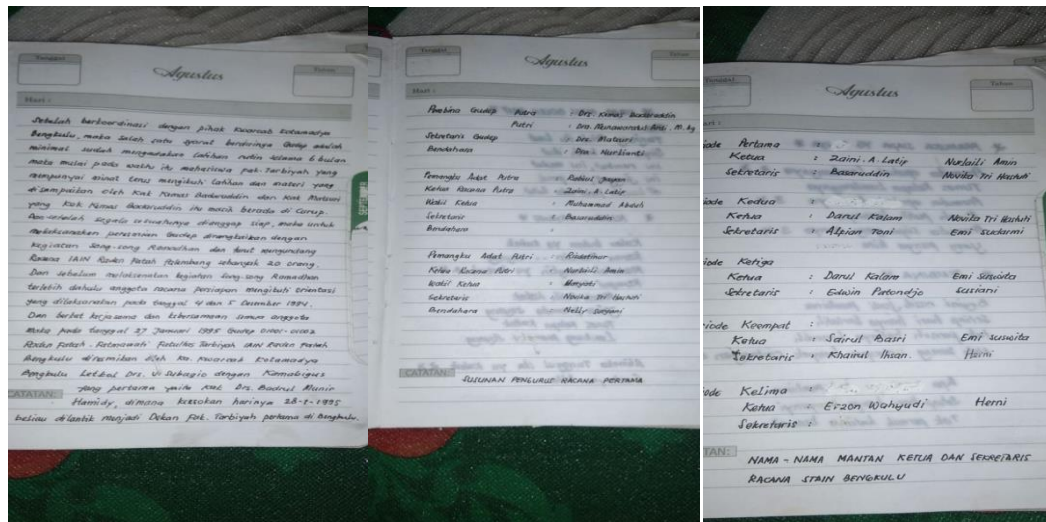 Tanggal
Agustus
Tahun
Hari :
Setelah berkoordinasi dengan pihak Kwarcab Kotamadya
Bengkulu, maka salah satu syarat berdirinya Gudep adalah
minimal sudah mengadakan latihan rutin selama 6 bulan
maka mulai pada waktu itu mahasiswa pak. Tarbiyah yang
mempunyai minat terus mengikuti latihan dan materi yang
disampaikan oleh Kak Kemas Badaruddin dan Kak Matsuri
yang Kak Kemas Badaruddin itu masih berada di Curup.
Dan setelah segala sesuatunya dianggap siap, maka untuk
melaksanakan peresmian Gudep dirangkaikan dengan
kegiatan Song-song Ramadhan dan turut mengundang
Racana IAIN Raden Fatah Palembang sebanyak 20 orang.
Dan sebelum melaksanakan kegiatan Song-song Ramadhan
terlebih dahulu anggota racana persiapan mengikuti orientasi
yang dilaksanakan pada tanggal 4 dan 5 Desember 1994.
Dan berkat kerjasama dan kebersamaan semua anggota
maka pada tanggal 27 Januari 1995 Gudep
Raden Fatah - Fatmawati Fakultas Tarbiyah IAIN Raden Fatah
Bengkulu diresmikan oleh Ka. Kwarcab Kotamadya
Bengkulu Letkol Drs. Subagio dengan Kamabigus
yang pertama yaitu Kak Drs. Badrul Munir
CATATAN:
Hamidy, dimana keesokan harinya 28-1-1995
beliau dilantik menjadi Dekan Fak. Tarbiyah pertama di Bengkulu.
SEPTEMBER
Agustus
Tahun
Hari :
Pembina Gudep Putra : Drs. Kemas Badaruddin
Putri : Dra.
Sekretaris Gudep : Drs. Matsuri
Bendahara : Dra Nurlianti
Pemangku Adat Putra :
Ketua Racana Putra : Zaini. A. Latif
Wakil Ketua : Muhammad Abduh
Sekretaris : Basaruddin
Bendahara :
Pemangku Adat Putri :
Ketua Racana Putri : Nurlaili Amin
Wakil Ketua : Maryati
Sekretaris : Novika Tri Hastuti
Bendahara : Nelly Suryani
CATATAN:
SUSUNAN PENGURUS RACANA PERTAMA
Tanggal
Agustus
Tahun
Pertama :
Ketua : Zaini. A. Latif Nurlaili Amin
Sekretaris : Basaruddin Novika Tri Hastuti
Kedua :
Ketua : Darul Kalam Novika Tri Hastuti
Sekretaris : Alpian Toni Emi Sudarmi
Ketiga
Ketua : Darul Kalam Emi Suswita
Sekretaris : Edwin Patondjo Susiani
Keempat :
Ketua : Sairul Basri Emi suswita
Sekretaris : Khairul Ihsan. Harni
Kelima :
Ketua : Erzon Wahyudi Herni
Sekretaris :
NAMA - NAMA MANTAN KETUA DAN SEKRETARIS
RACANA STAIN BENGKULU